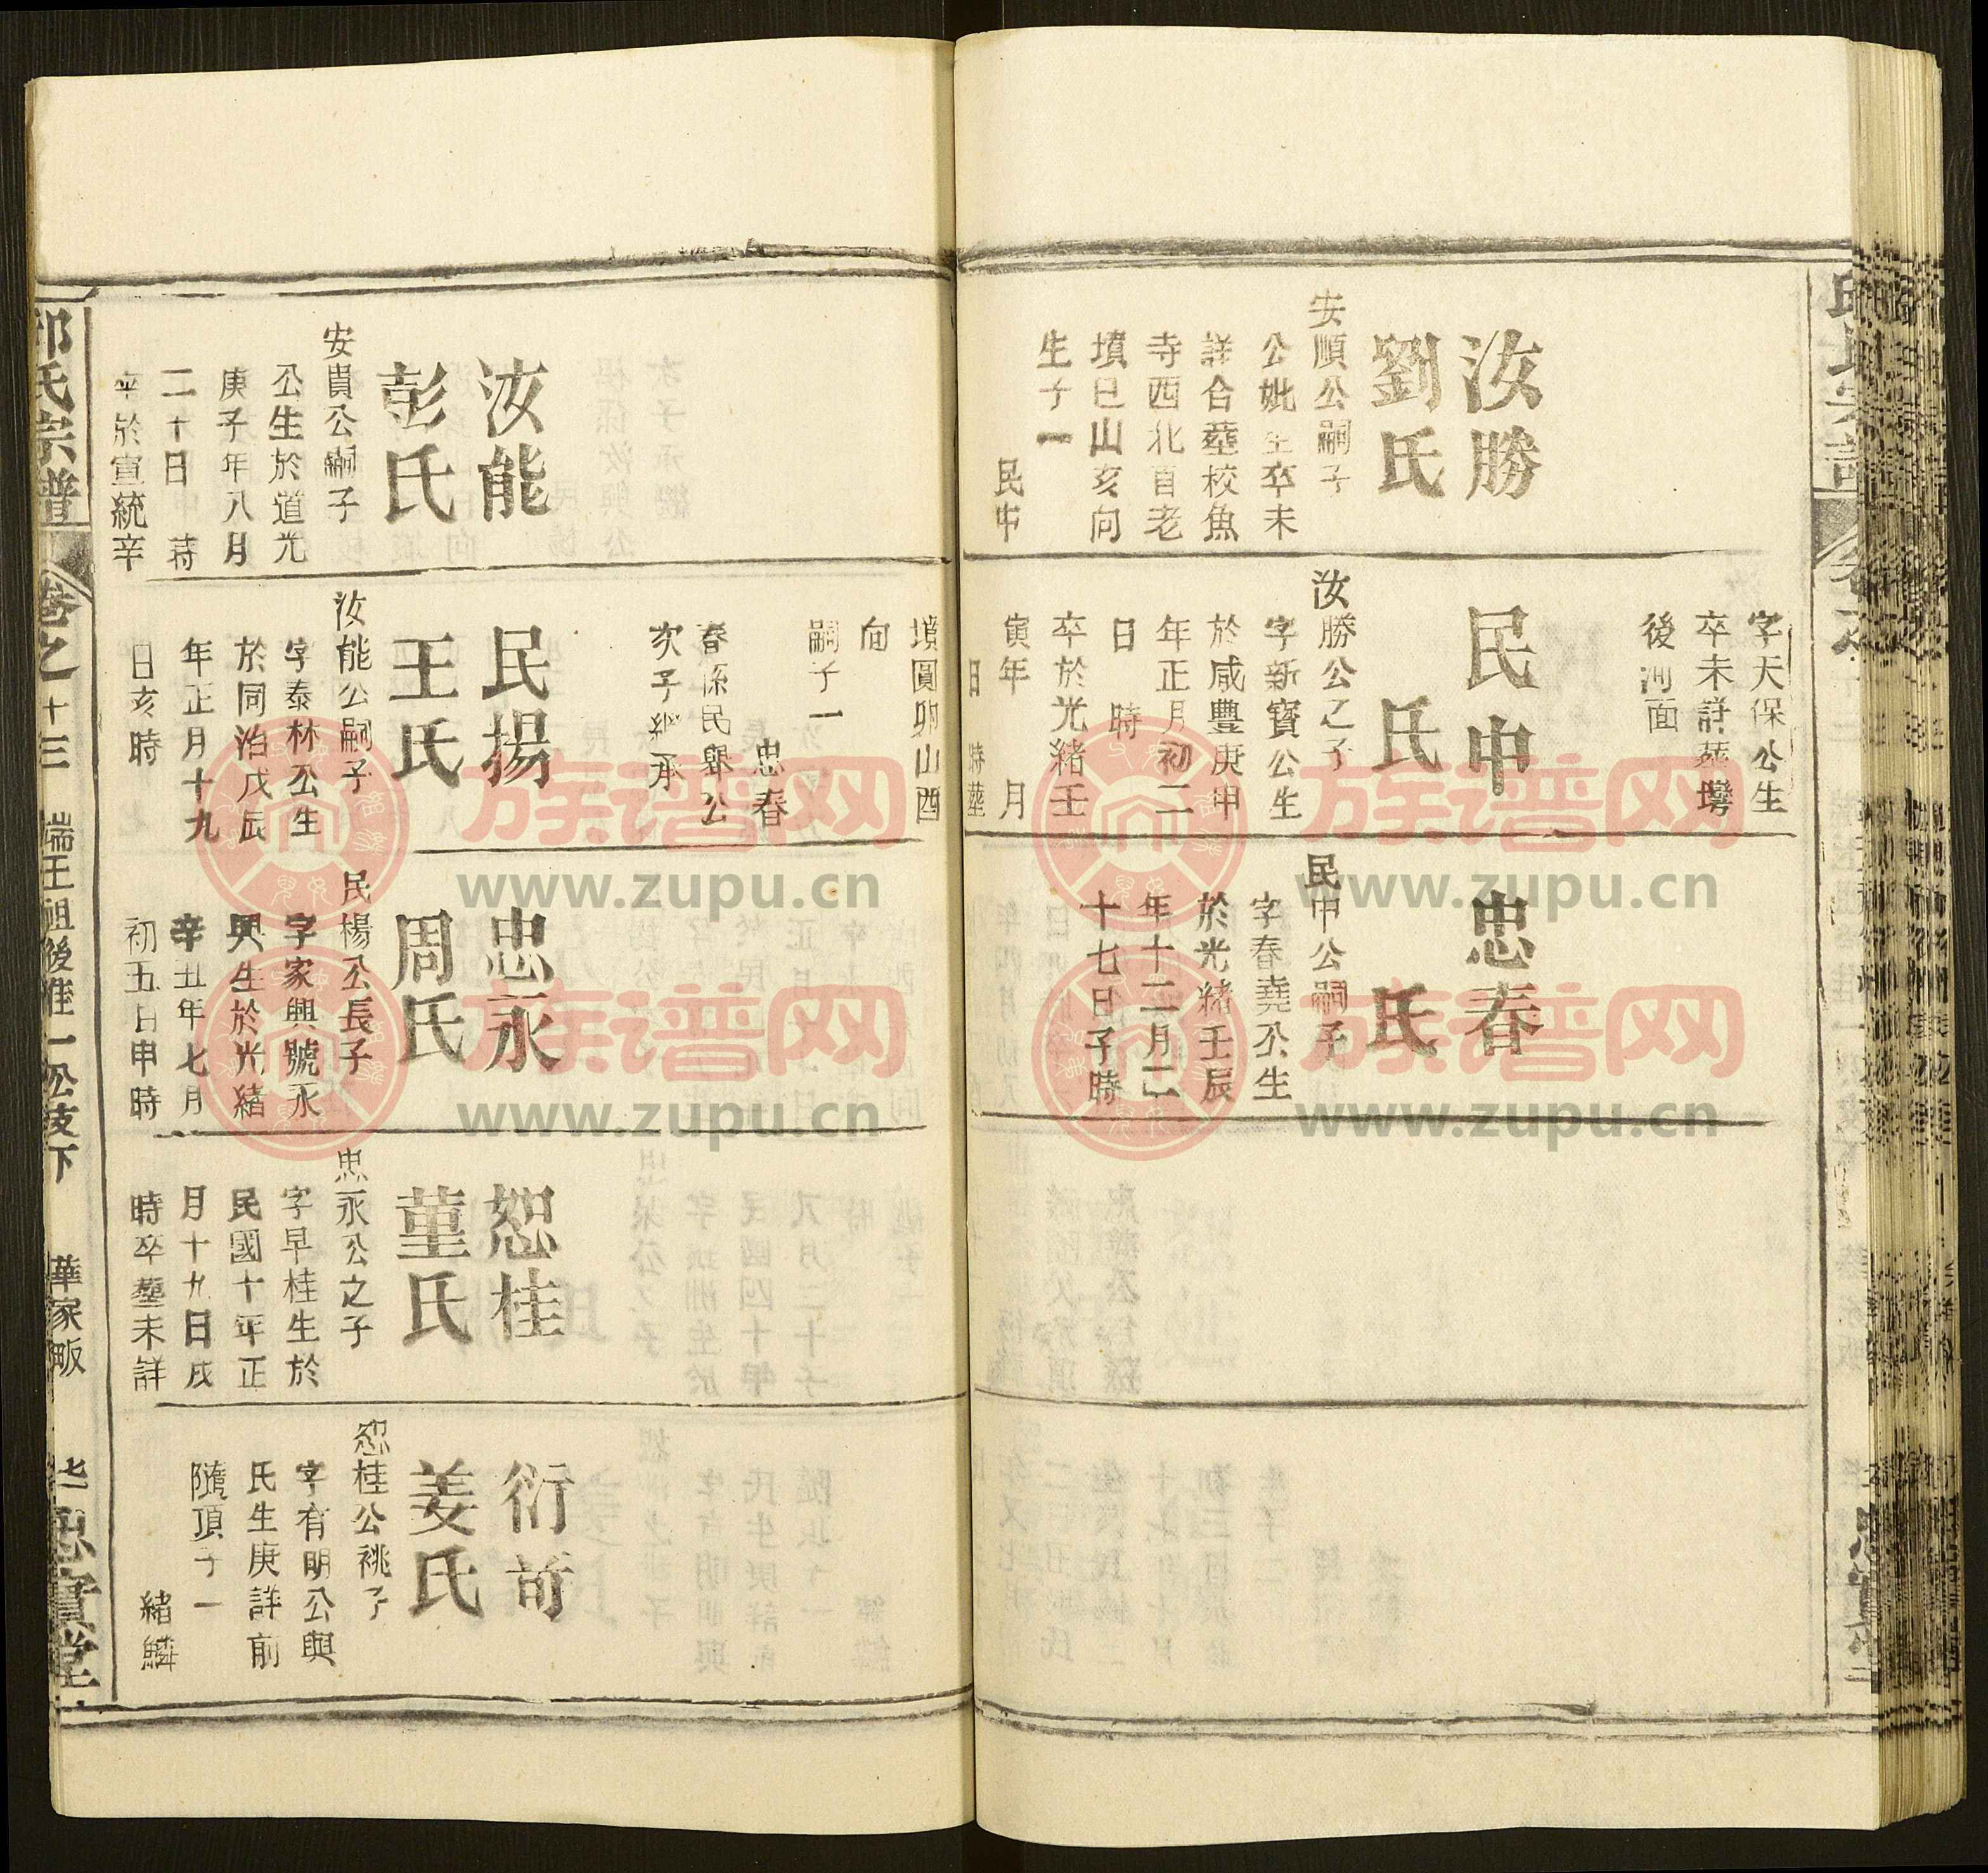 汝勝
劉氏
安順公嗣子
公妣生卒未
詳合塟校魚
寺西北首老
墳巳山亥向
生子一
民申
字天保公生
卒未詳塟塆
後河面
民申
氏
汝勝公之子
字新寶公生
於咸豐庚申
年正月初二
日 時
卒於光緒壬
寅年 月
日 時塟
忠春
氏
民申公嗣子
字春堯公生
於光緒壬辰
年十二月二
十七日子時
汝能
彭氏
安貴公嗣子
公生於道光
庚子年八月
二十日 蒔
卒於宣統辛
墳圓卯山酉
向
嗣子一
忠春
春係民舉公
次子繼承
民揚
王氏
汝能公嗣子
字泰林公生
於同治戊辰
年正月十九
日亥時
忠永
周氏
民楊公長子
字家興號永
興生於光緒
辛丑年七月
初五日申時
恕桂
董氏
忠永公之子
字早桂生於
民國十年正
月十九日戌
時卒塟未詳
衍苛
姜氏
恕桂公祧子
字有明公與
氏生庚詳前
隨頂子一
緒鱗
邱氏宗譜
卷之十三
端王祖後惟一公支下
華家畈
七
忠實堂
族谱网
www.zupu.cn
族谱网
www.zupu.cn
族谱网
www.zupu.cn
族谱网
www.zupu.cn